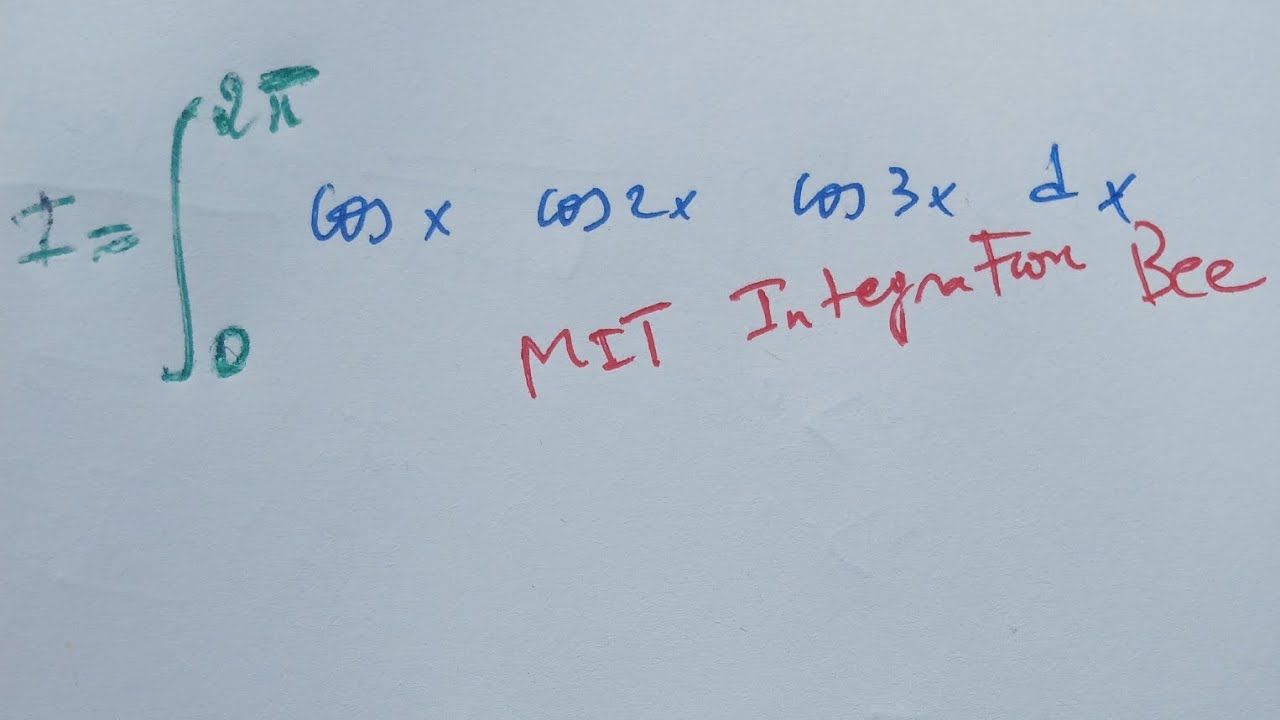 I = ∫₀^{2π} cos x cos 2x cos 3x dx
MIT Integration Bee